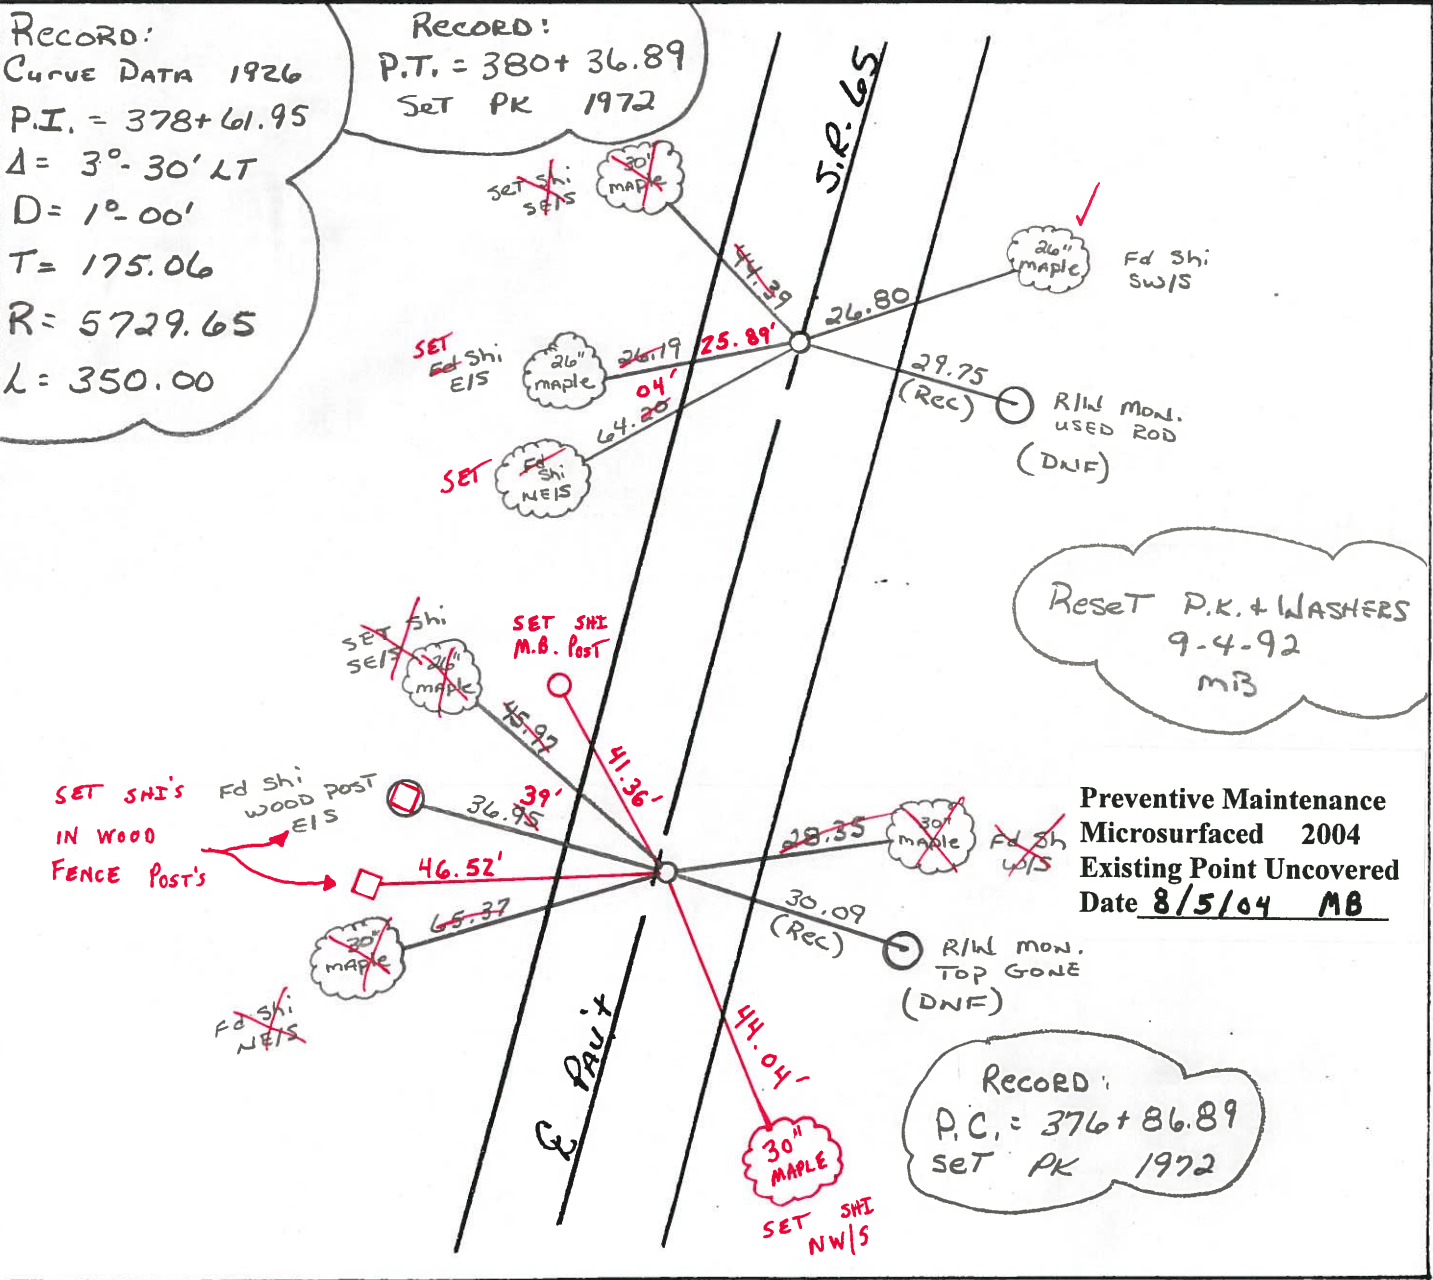 Record:
Curve Data 1926
P.I. = 378+61.95
Δ = 3°-30' LT
D = 1°-00'
T = 175.06
R = 5729.65
L = 350.00
Record:
P.T. = 380+36.89
Set PK 1972
S.R. 65
Set Shi
SE/S
30"
Maple
44.39
26"
Maple
Fd Shi
SW/S
26.80
SET
Fd Shi
E/S
26"
Maple
26.19
25.89'
04'
64.20
SET
Fd
Shi
NE/S
29.75
(Rec)
R/W Mon.
Used Rod
(DNF)
Reset P.K. + Washers
9-4-92
MB
Set Shi
SE/S
26"
Maple
45.97
SET SHI
M.B. Post
41.36'
SET SHI'S
IN WOOD
FENCE POST'S
Fd Shi
Wood Post
E/S
39'
36.95
46.52'
65.37
30"
Maple
Fd Shi
NE/S
28.35
30"
Maple
Fd Sh
W/S
Preventive Maintenance
Microsurfaced 2004
Existing Point Uncovered
Date 8/5/04 MB
30.09
(Rec)
R/W Mon.
Top Gone
(DNF)
44.04'
30"
MAPLE
SET SHI
NW/S
℄ Pav't
Record:
P.C. = 376+86.89
Set PK 1972